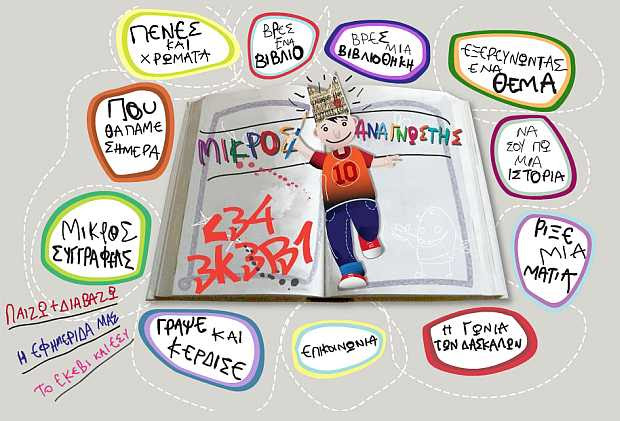 ΠΕΝΕΣ
ΚΑΙ
ΧΡΩΜΑΤΑ
ΒΡΕΣ
ΕΝΑ
ΒΙΒΛΙΟ
ΒΡΕΣ ΜΙΑ
ΒΙΒΛΙΟΘΗΚΗ
ΕΞΕΡΕΥΝΩΝΤΑΣ
ΕΝΑ
ΘΕΜΑ
ΠΟΥ
ΘΑ ΠΑΜΕ
ΣΗΜΕΡΑ
ΜΙΚΡΟΣ ΑΝΑΓΝΩΣΤΗΣ
10
ΝΑ
ΣΟΥ ΠΩ
ΜΙΑ
ΙΣΤΟΡΙΑ
ΜΙΚΡΟΣ
ΣΥΓΓΡΑΦΕΑΣ
<34
3K3B1
ΡΙΞΕ
ΜΙΑ
ΜΑΤΙΑ
ΠΑΙΖΩ + ΔΙΑΒΑΖΩ
Η ΕΦΗΜΕΡΙΔΑ ΜΑΣ
ΤΟ ΕΚΕΒΙ ΚΑΙ ΕΣΥ
ΓΡΑΨΕ ΚΑΙ
ΚΕΡΔΙΣΕ
ΕΠΙΚΟΙΝΩΝΙΑ
Η ΓΩΝΙΑ
ΤΩΝ ΔΑΣΚΑΛΩΝ